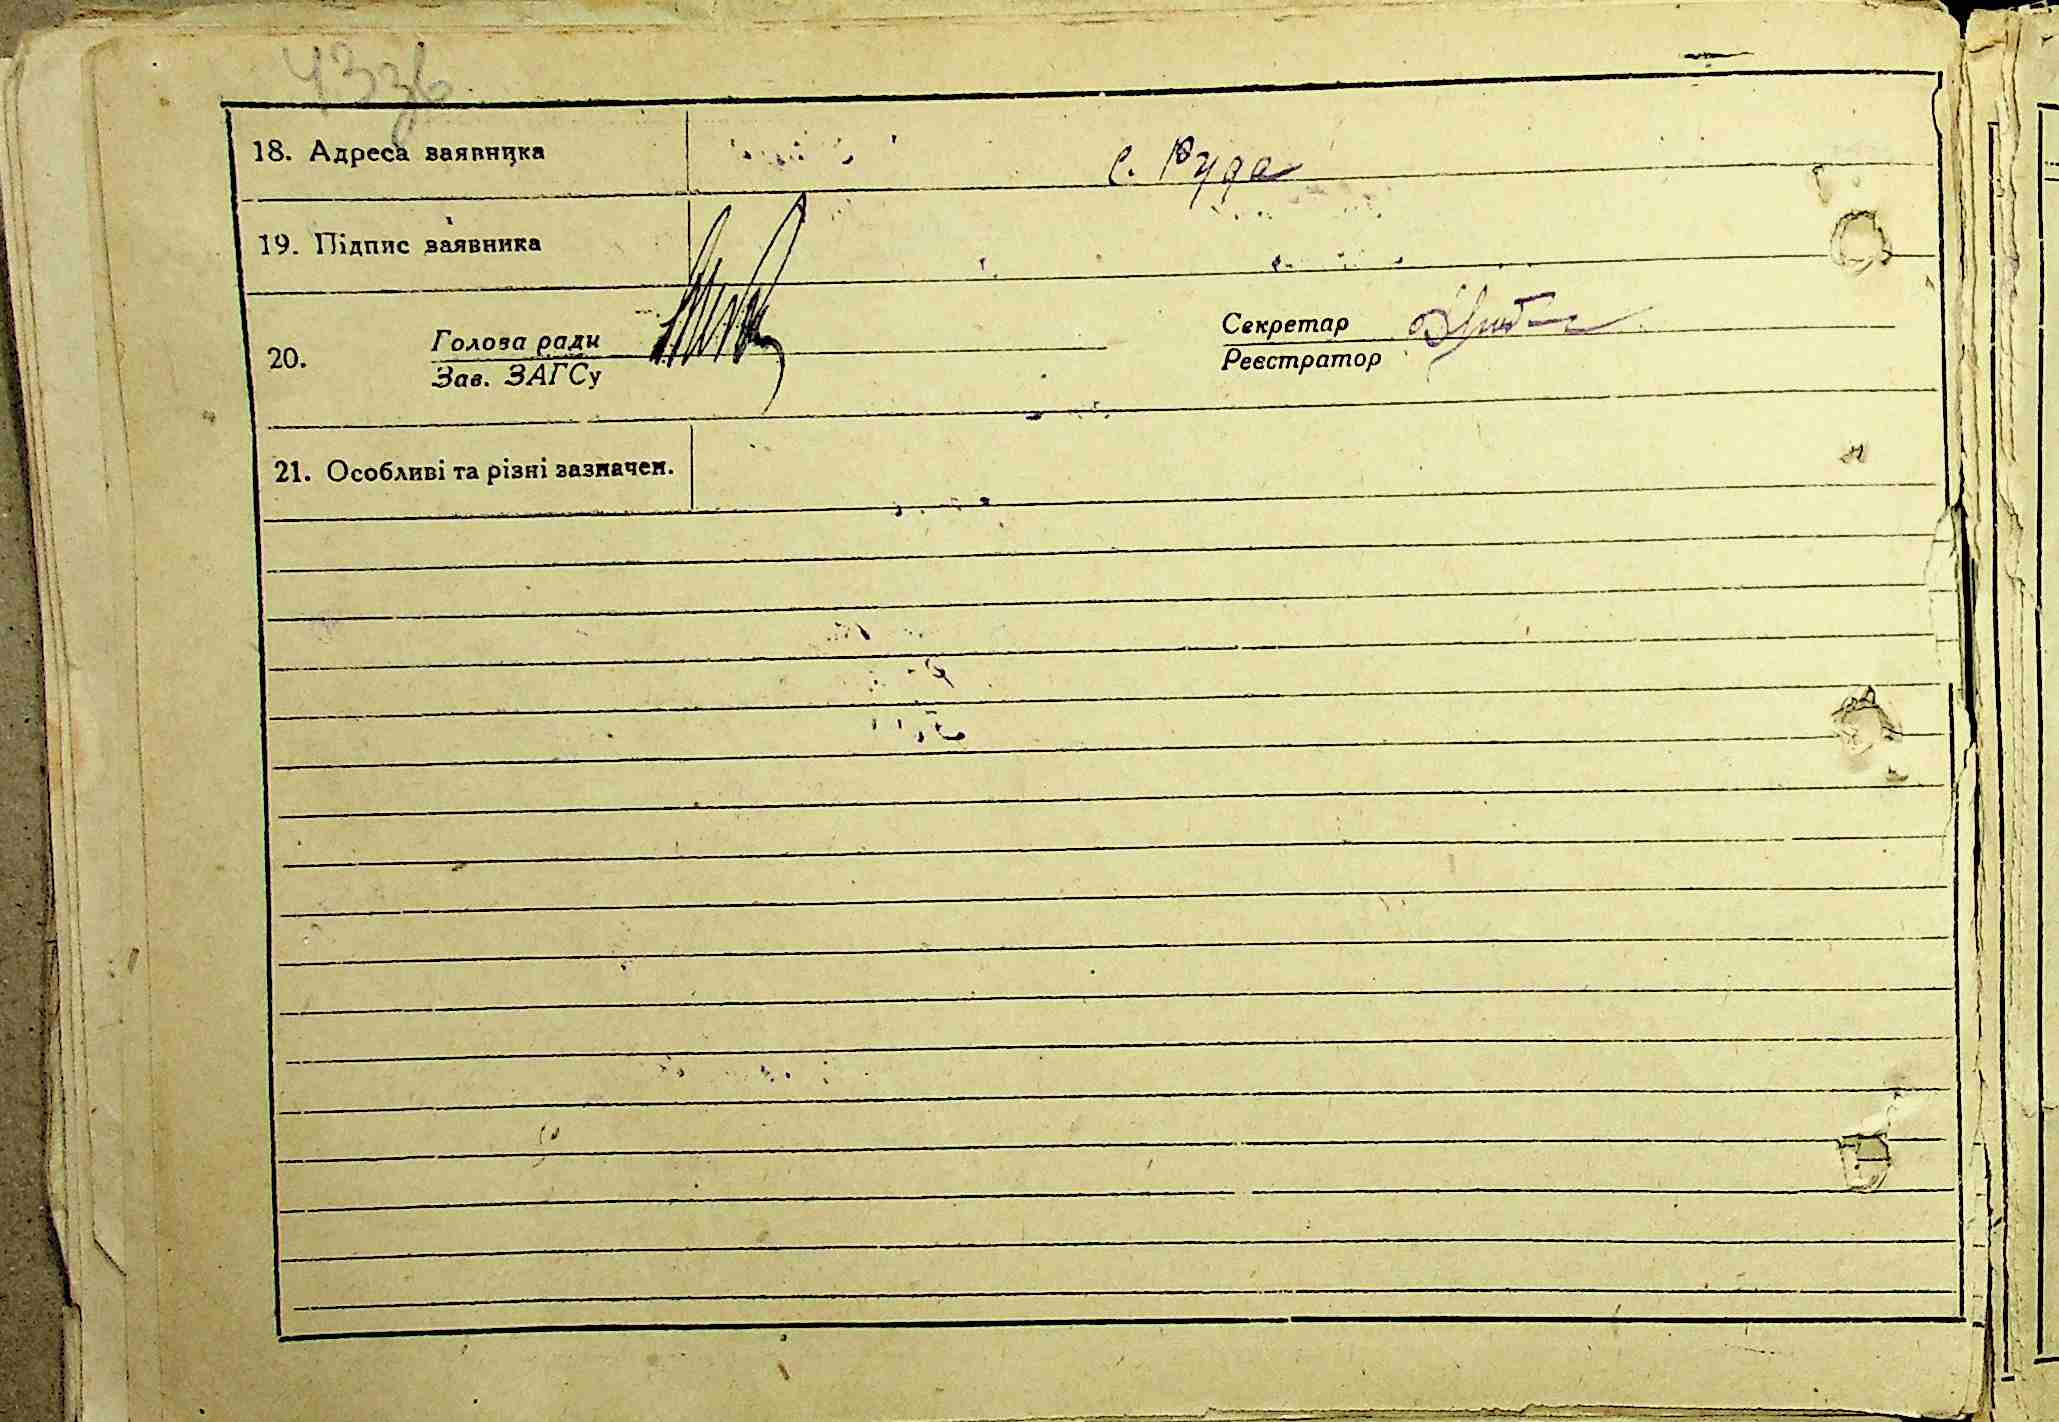 43зв
18. Адреса заявника с. Руда
19. Підпис заявника
20. Голова ради Секретар
Зав. ЗАГСу Реєстратор
21. Особливі та різні зазначен.